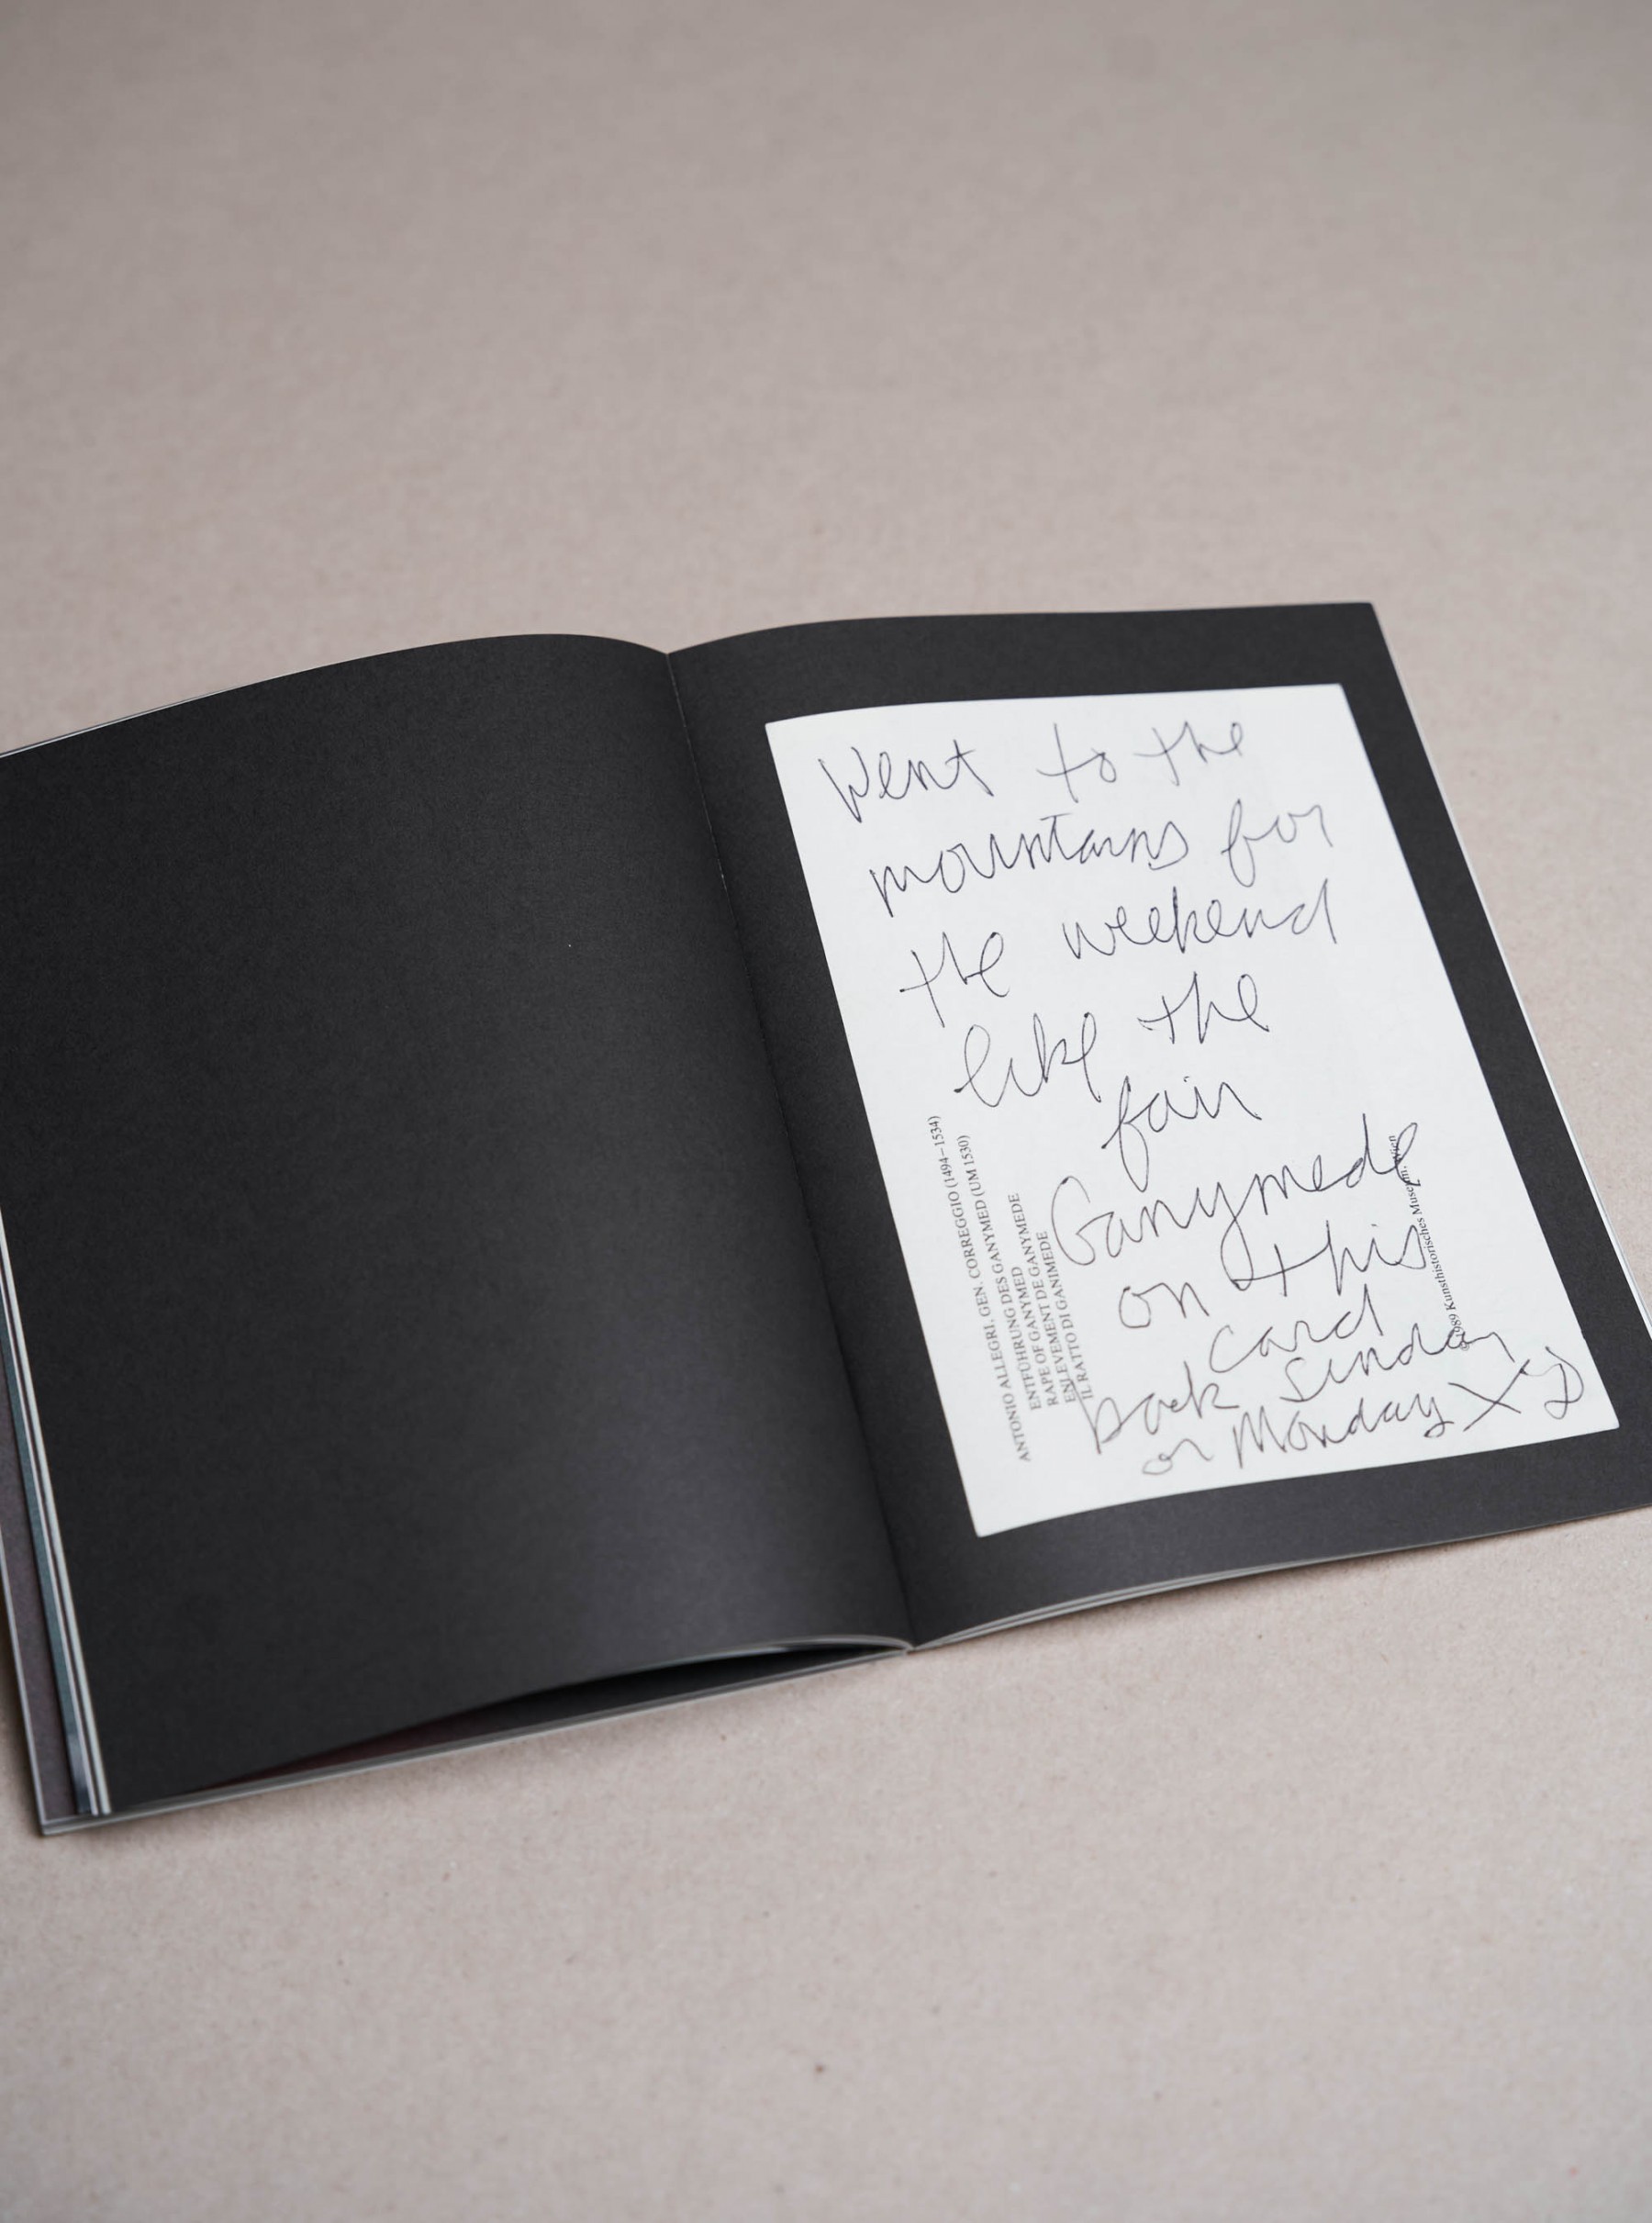 Went to the
mountains for
the weekend
like the
fair
Ganymede
on this
card
back Sunday
or Monday X
ANTONIO ALLEGRI, GEN. CORREGGIO (1494–1534)
ENTFÜHRUNG DES GANYMED (UM 1530)
RAPE OF GANYMEDE
ENLEVEMENT DE GANYMEDE
IL RATTO DI GANIMEDE
1989 Kunsthistorisches Museum, Wien